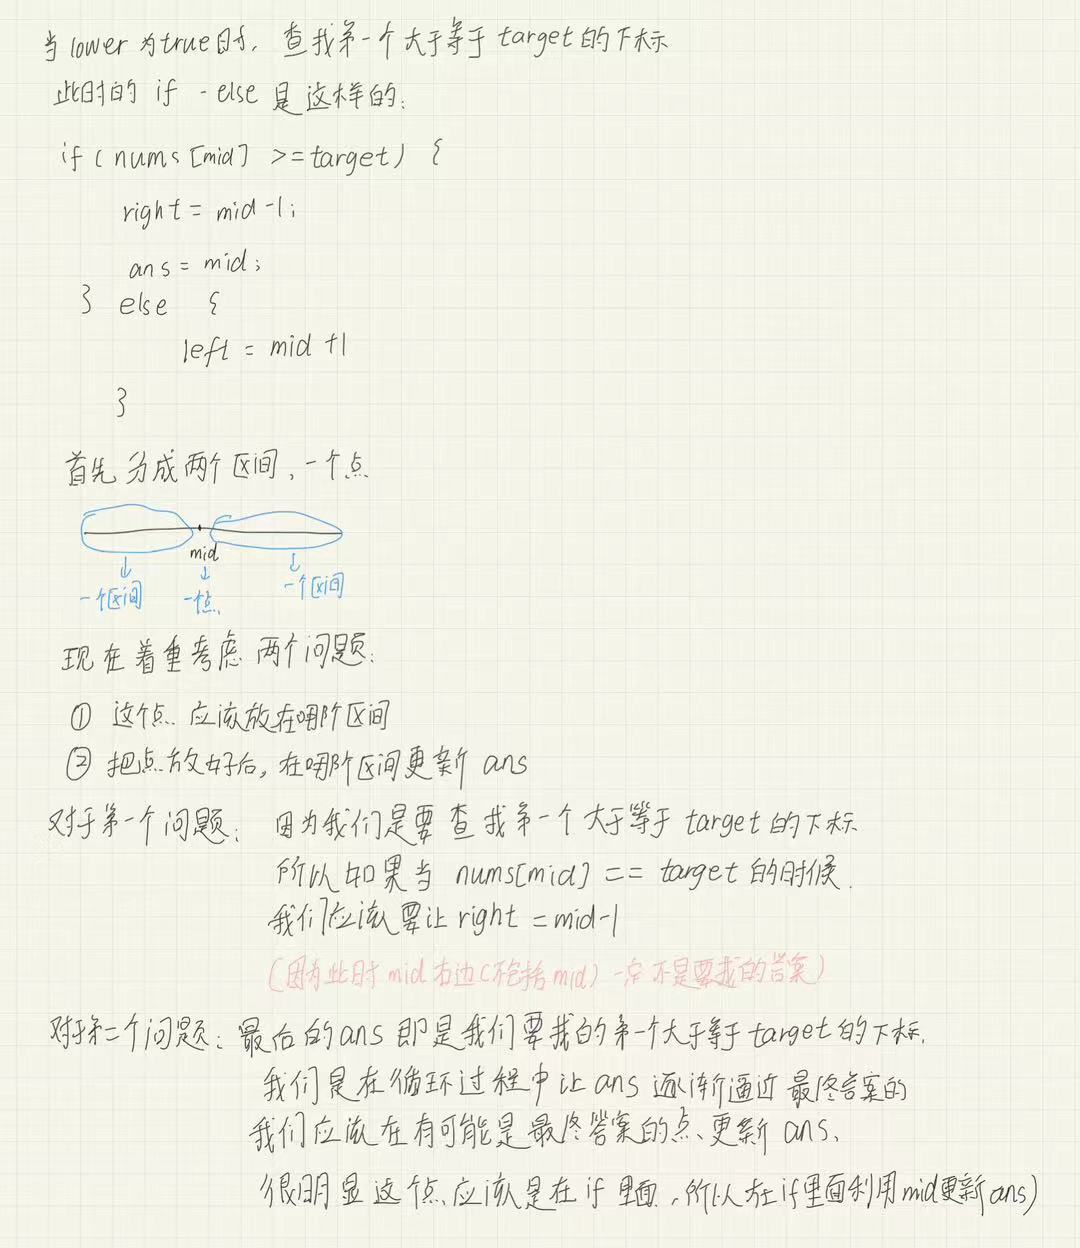 当lower为true时，查找第一个大于等于target的下标
此时的 if - else 是这样的：
if ( nums [mid] >= target ) {
right = mid -1;
ans = mid;
} else {
left = mid +1
}
首先分成两个区间，一个点
mid
一个区间 一个点 一个区间
现在着重考虑两个问题：
① 这个点应该放在哪个区间
② 把点放好后，在哪个区间更新 ans
对于第一个问题：因为我们是要查找第一个大于等于 target 的下标
所以如果当 nums[mid] == target 的时候
我们应该要让 right = mid-1
(因为此时 mid 右边(不包括mid) 一定不是要找的答案)
对于第二个问题：最后的ans即是我们要找的第一个大于等于target的下标.
我们是在循环过程中让 ans 逐渐逼近最终答案的
我们应该在有可能是最终答案的点更新 ans.
很明显这个点应该是在 if 里面，所以在if里面利用mid更新ans)